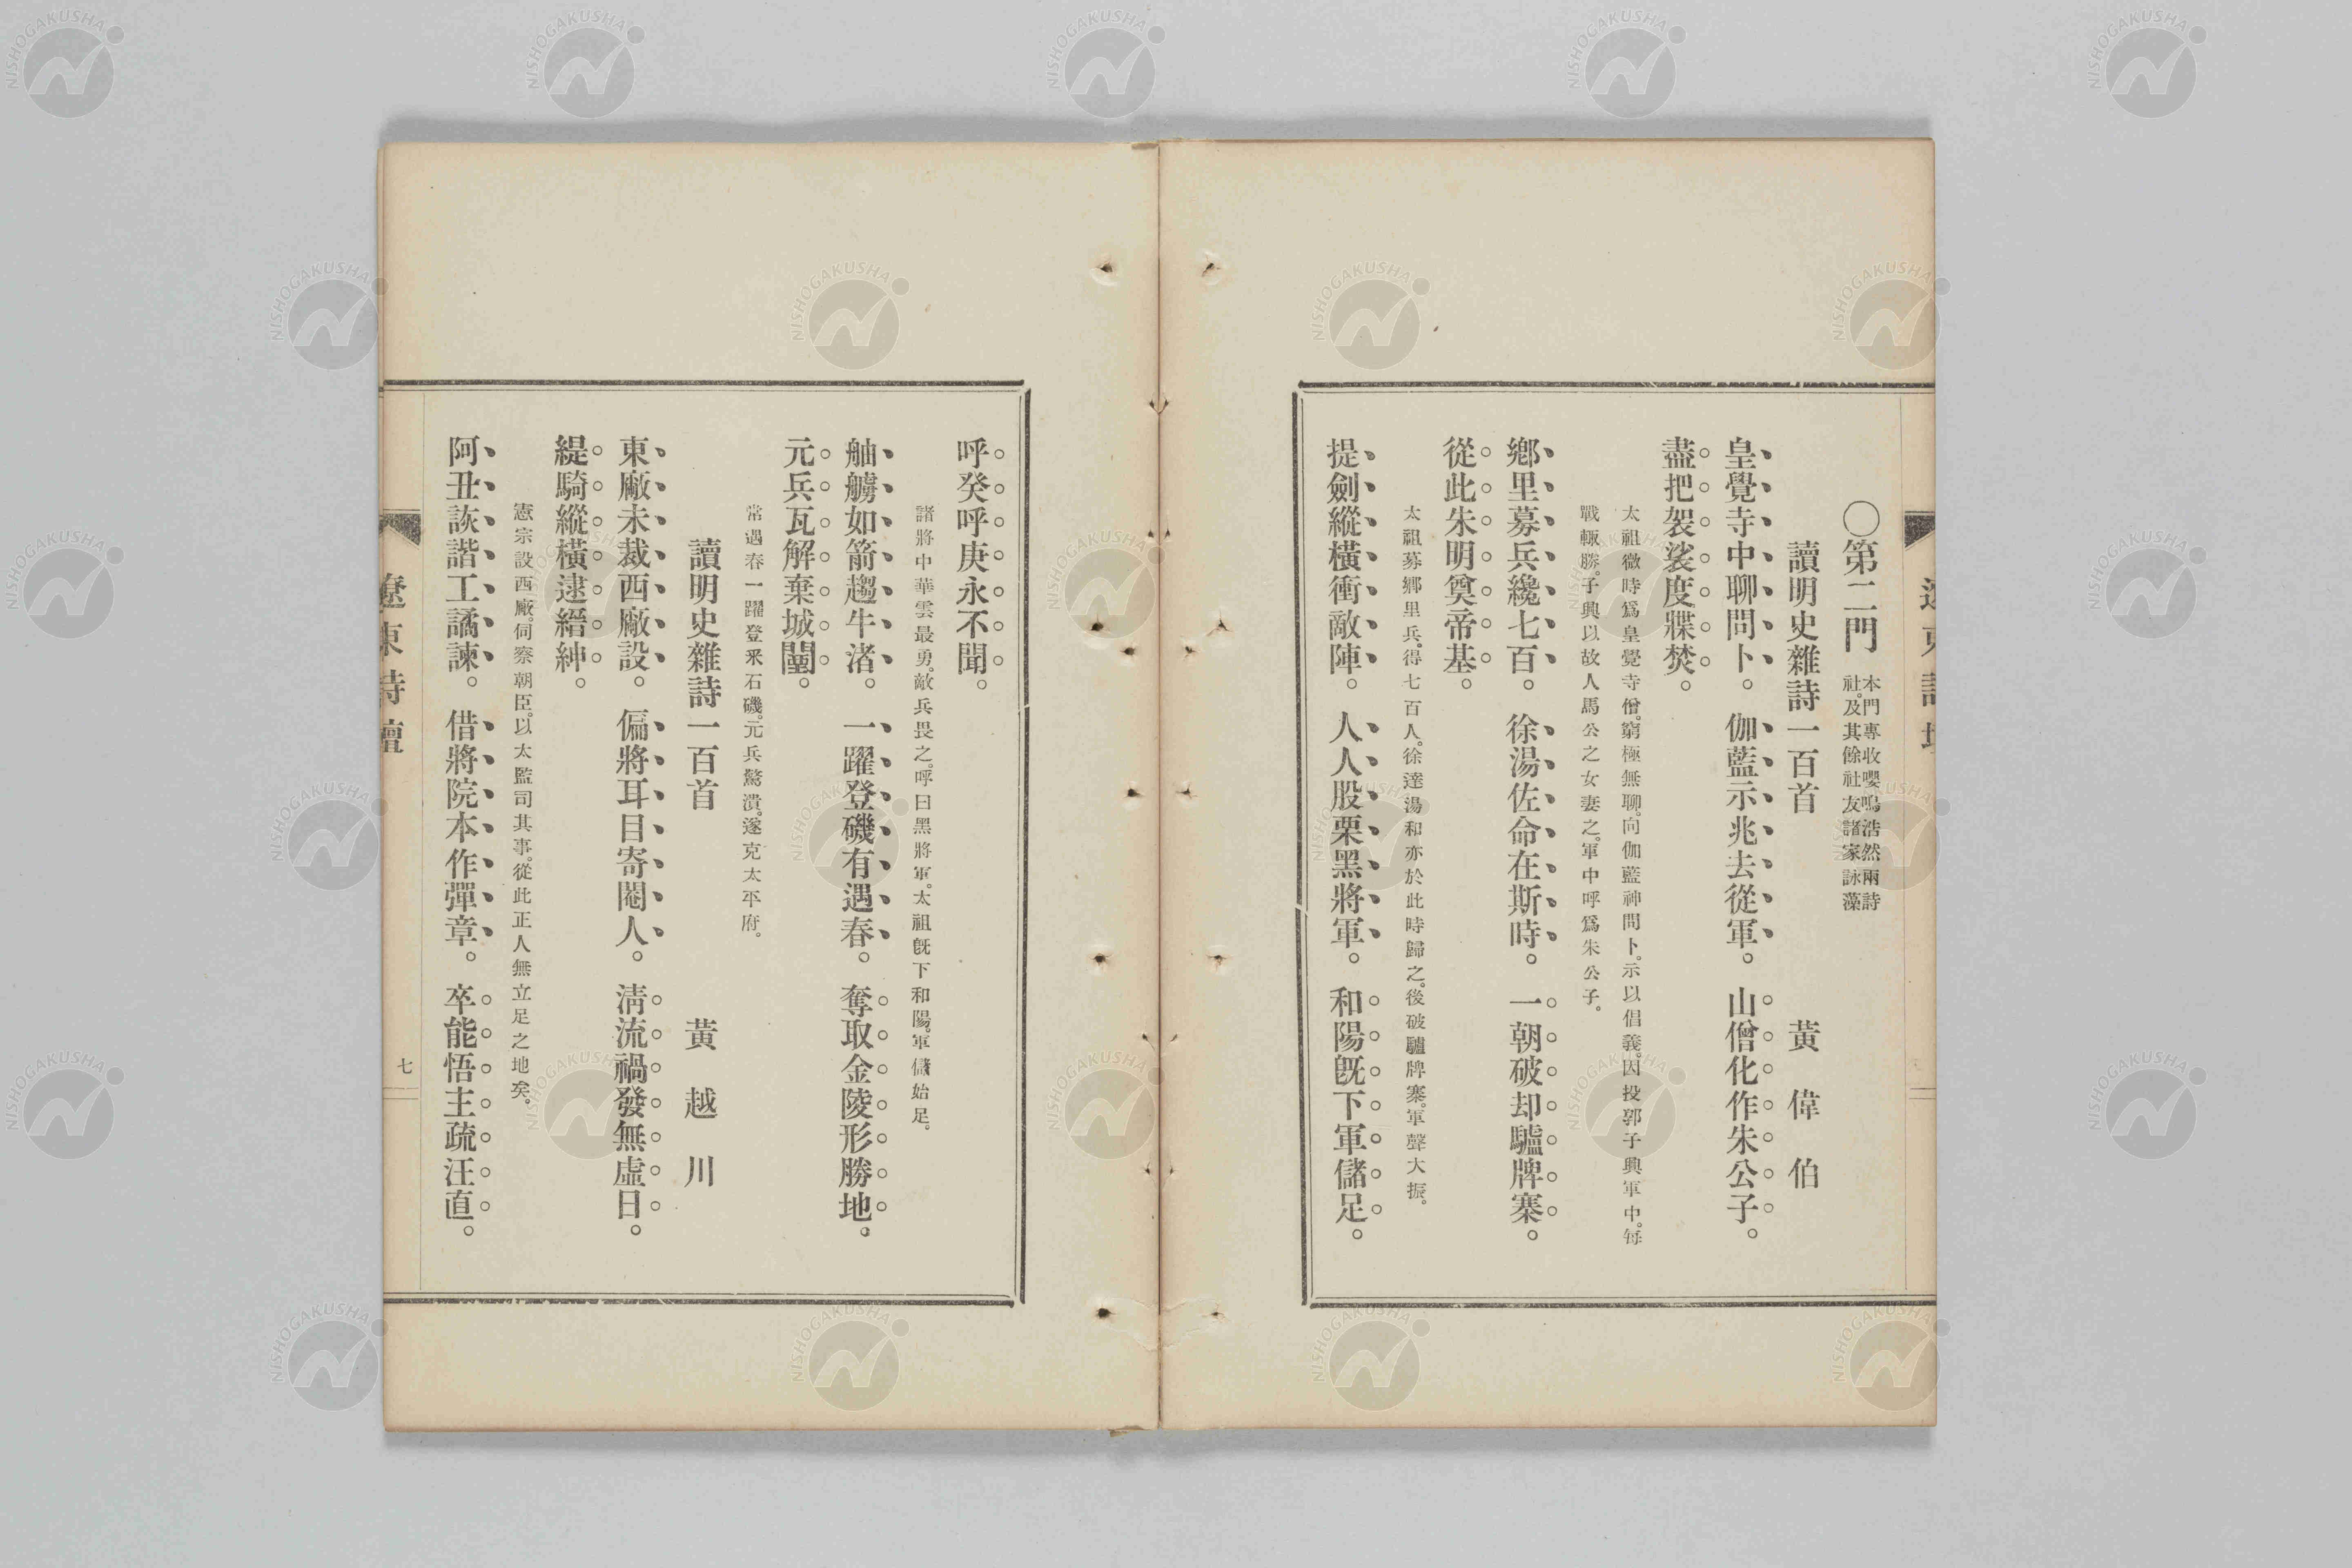 〇第二門 本門專收嚶鳴浩然兩詩
社。及其餘社友諸家詠藻
讀明史雜詩一百首 黃偉伯
皇覺寺中聊問卜。伽藍示兆去從軍。山僧化作朱公子。
盡把袈裟度牒焚。
太祖微時爲皇覺寺僧。窮極無聊。向伽藍神問卜。示以倡義。因投郭子興軍中。每
戰輒勝。子興以故人馬公之女妻之。軍中呼爲朱公子。
鄉里募兵纔七百。徐湯佐命在斯時。一朝破却驢牌寨。
從此朱明奠帝基。
太祖募鄉里兵。得七百人。徐達湯和亦於此時歸之。後破驢牌寨。軍聲大振。
提劍縱橫衝敵陣。人人股栗黑將軍。和陽旣下軍儲足。
呼癸呼庚永不聞。
諸將中華雲最勇。敵兵畏之。呼曰黑將軍。太祖旣下和陽。軍儲始足。
舳艣如箭趨牛渚。一躍登磯有遇春。奪取金陵形勝地。
元兵瓦解棄城闉。
常遇春一躍登釆石磯。元兵驚潰。遂克太平府。
讀明史雜詩一百首 黃越川
東廠未裁西廠設。偏將耳目寄閹人。淸流禍發無虛日。
緹騎縱橫逮縉紳。
憲宗設西廠。伺察朝臣。以太監司其事。從此正人無立足之地矣。
阿丑詼諧工譎諫。借將院本作彈章。卒能悟主疏汪直。
遼東詩壇
七
NISHOGAKUSHA